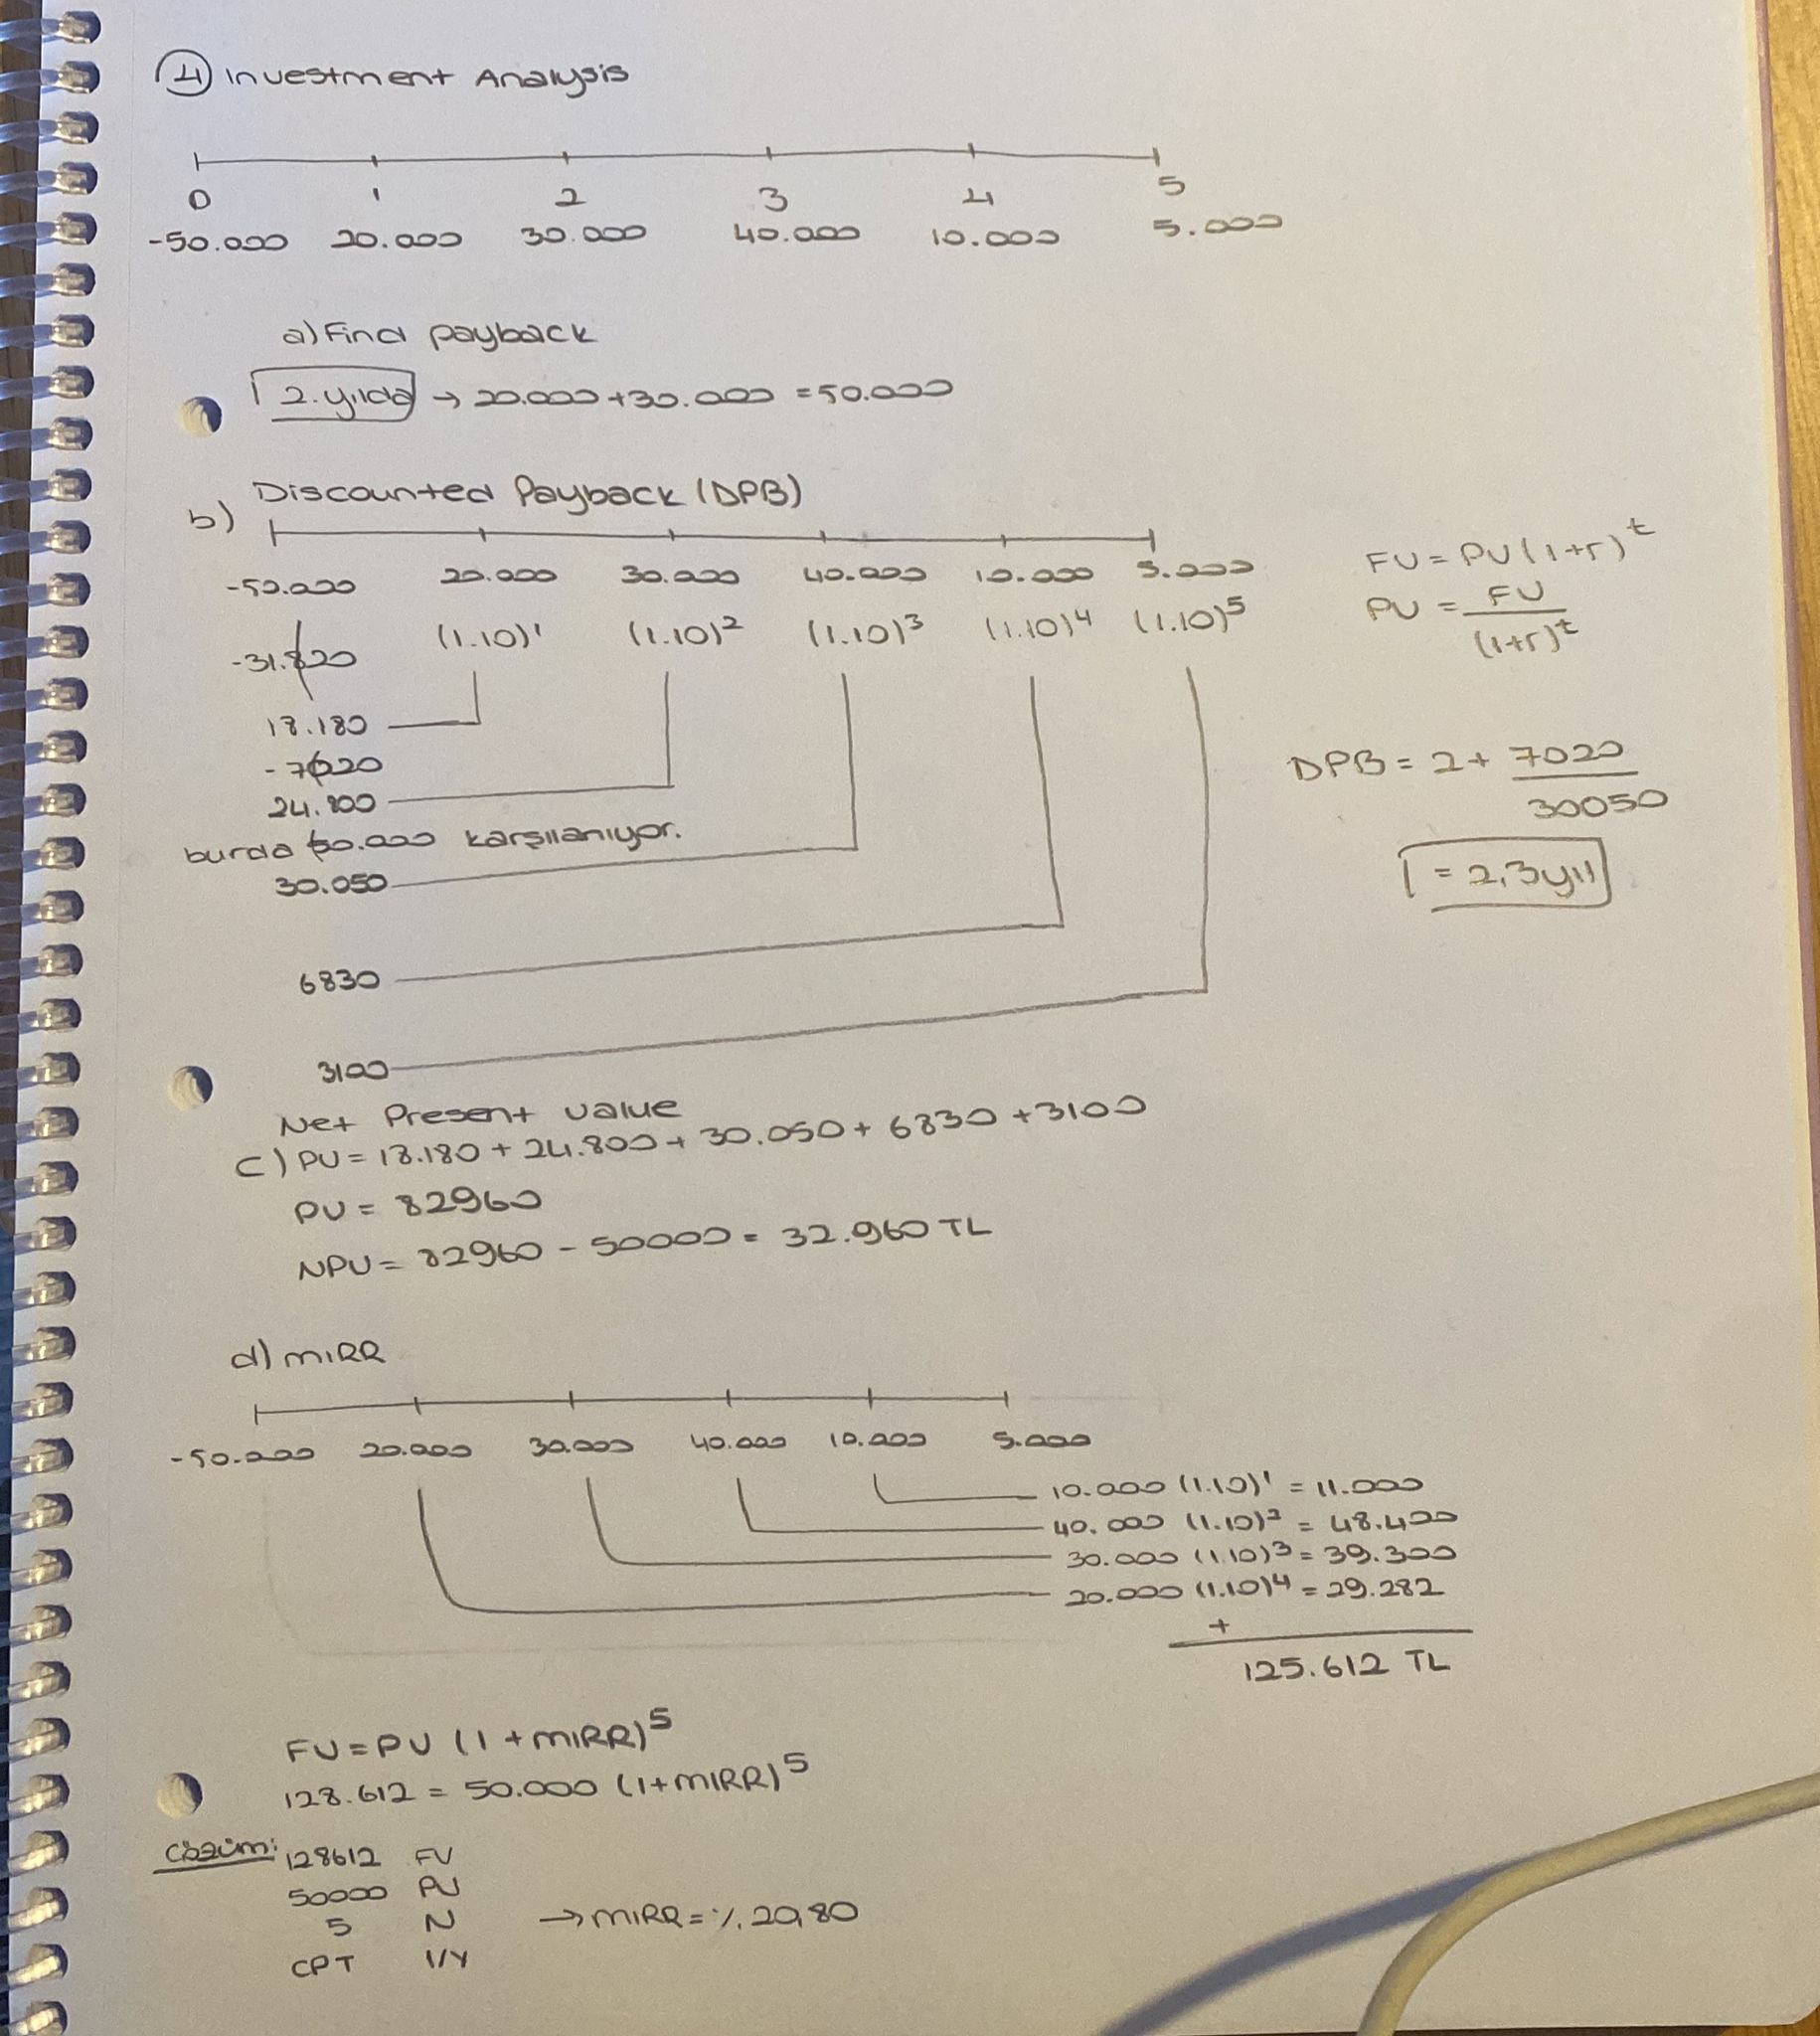 ④ Investment Analysis
0 1 2 3 4 5
-50.000 20.000 30.000 40.000 10.000 5.000
a) Find payback
2. yılda → 20.000 + 30.000 = 50.000
b) Discounted Payback (DPB)
-50.000 20.000 30.000 40.000 10.000 5.000
(1.10)¹ (1.10)² (1.10)³ (1.10)⁴ (1.10)⁵
FV = PV (1+r)^t
PV = FV / (1+r)^t
-31.820
18.180
-7020
24.800
burda 50.000 karşılanıyor.
30.050
6830
3100
DPB = 2 + 7020 / 30050
= 2,3 yıl
Net Present Value
c) PV = 18.180 + 24.800 + 30.050 + 6830 + 3100
PV = 82960
NPV = 82960 - 50000 = 32.960 TL
d) MIRR
-50.000 20.000 30.000 40.000 10.000 5.000
10.000 (1.10)¹ = 11.000
40.000 (1.10)² = 48.400
30.000 (1.10)³ = 39.300
20.000 (1.10)⁴ = 29.282
+
125.612 TL
FV = PV (1 + MIRR)⁵
128.612 = 50.000 (1+MIRR)⁵
Çözüm: 128612 FV
50000 PV
5 N → MIRR = %20,80
CPT I/Y